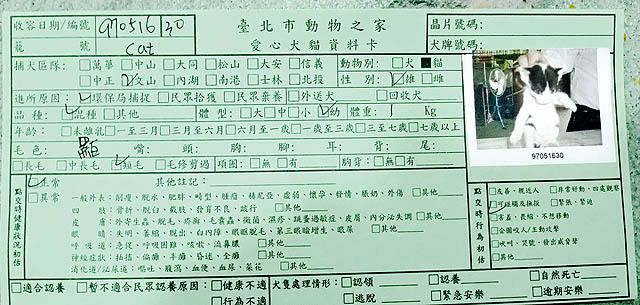 收容日期/編號 970516 30 臺北市動物之家 晶片號碼:
籠 號 cat 愛心犬貓資料卡 犬牌號碼:
捕犬區隊: □萬華 □中山 □大同 □松山 □大安 □信義 動物別: □犬 ■貓
□中正 ☑文山 □內湖 □南港 □士林 □北投 性 別: ☑雄 □雌
進所原因: ☑環保局捕捉 □民眾拾獲 □民眾棄養 □外送犬 □回收犬
品 種: ☑混種 □其他 體 型: □大 □中 □小 ☑幼 體重: 1 Kg
年齡: □未離乳 □一至三月 □三月至六月 □六月至一歲 □一歲至三歲 □三至七歲 □七歲以上
毛色: 嘴: 頭: 胸: 腳: 耳: 背: 尾:
□長毛 □中長毛 ☑短毛 □毛修剪過 項圈: □無 □有 胸背: □無 □有
97051630
點交時健康狀況初估
☑正常 其他註記:
□異常 一般外表: 削瘦、脫水、肥胖、畸型、腫瘤、赫尼亞、虛弱、懷孕、發情、脹奶、外傷 □其他
四 肢: 骨折、脫臼、截肢、發育不良、跛行 □其他
皮 膚: 外寄生蟲、脫毛、疥癬、毛囊蟲、黴菌、濕疹、跳蚤過敏症、皮屑、內分泌失調 □其他
眼 睛: 失明、萎縮、脫出、白內障、眼瞼脫毛、第三眼瞼增生、眼屎 □其他
呼 吸 道: 急促、呼吸困難、咳嗽、流鼻膿 □其他
神經症狀: 抽搐、偏癱、半癱、昏迷、全癱 □其他
消化道/泌尿道: 嘔吐、腹瀉、血便、血尿、菜花 □其他
點交時行為初估
□友善、親近人 □非常好動、四處觀察
☑可碰觸及撫摸 □緊張、緊迫
□害羞、長縮、不想移動
□企圖咬人/主動攻擊
□吠叫、哭號、發出威脅聲
□其他
□適合認養 □暫不適合民眾認養原因: □健康不適 犬隻處理情形: □認領 □認養 □自然死亡
□行為不適 □逃脫 □緊急安樂 □逾期安樂